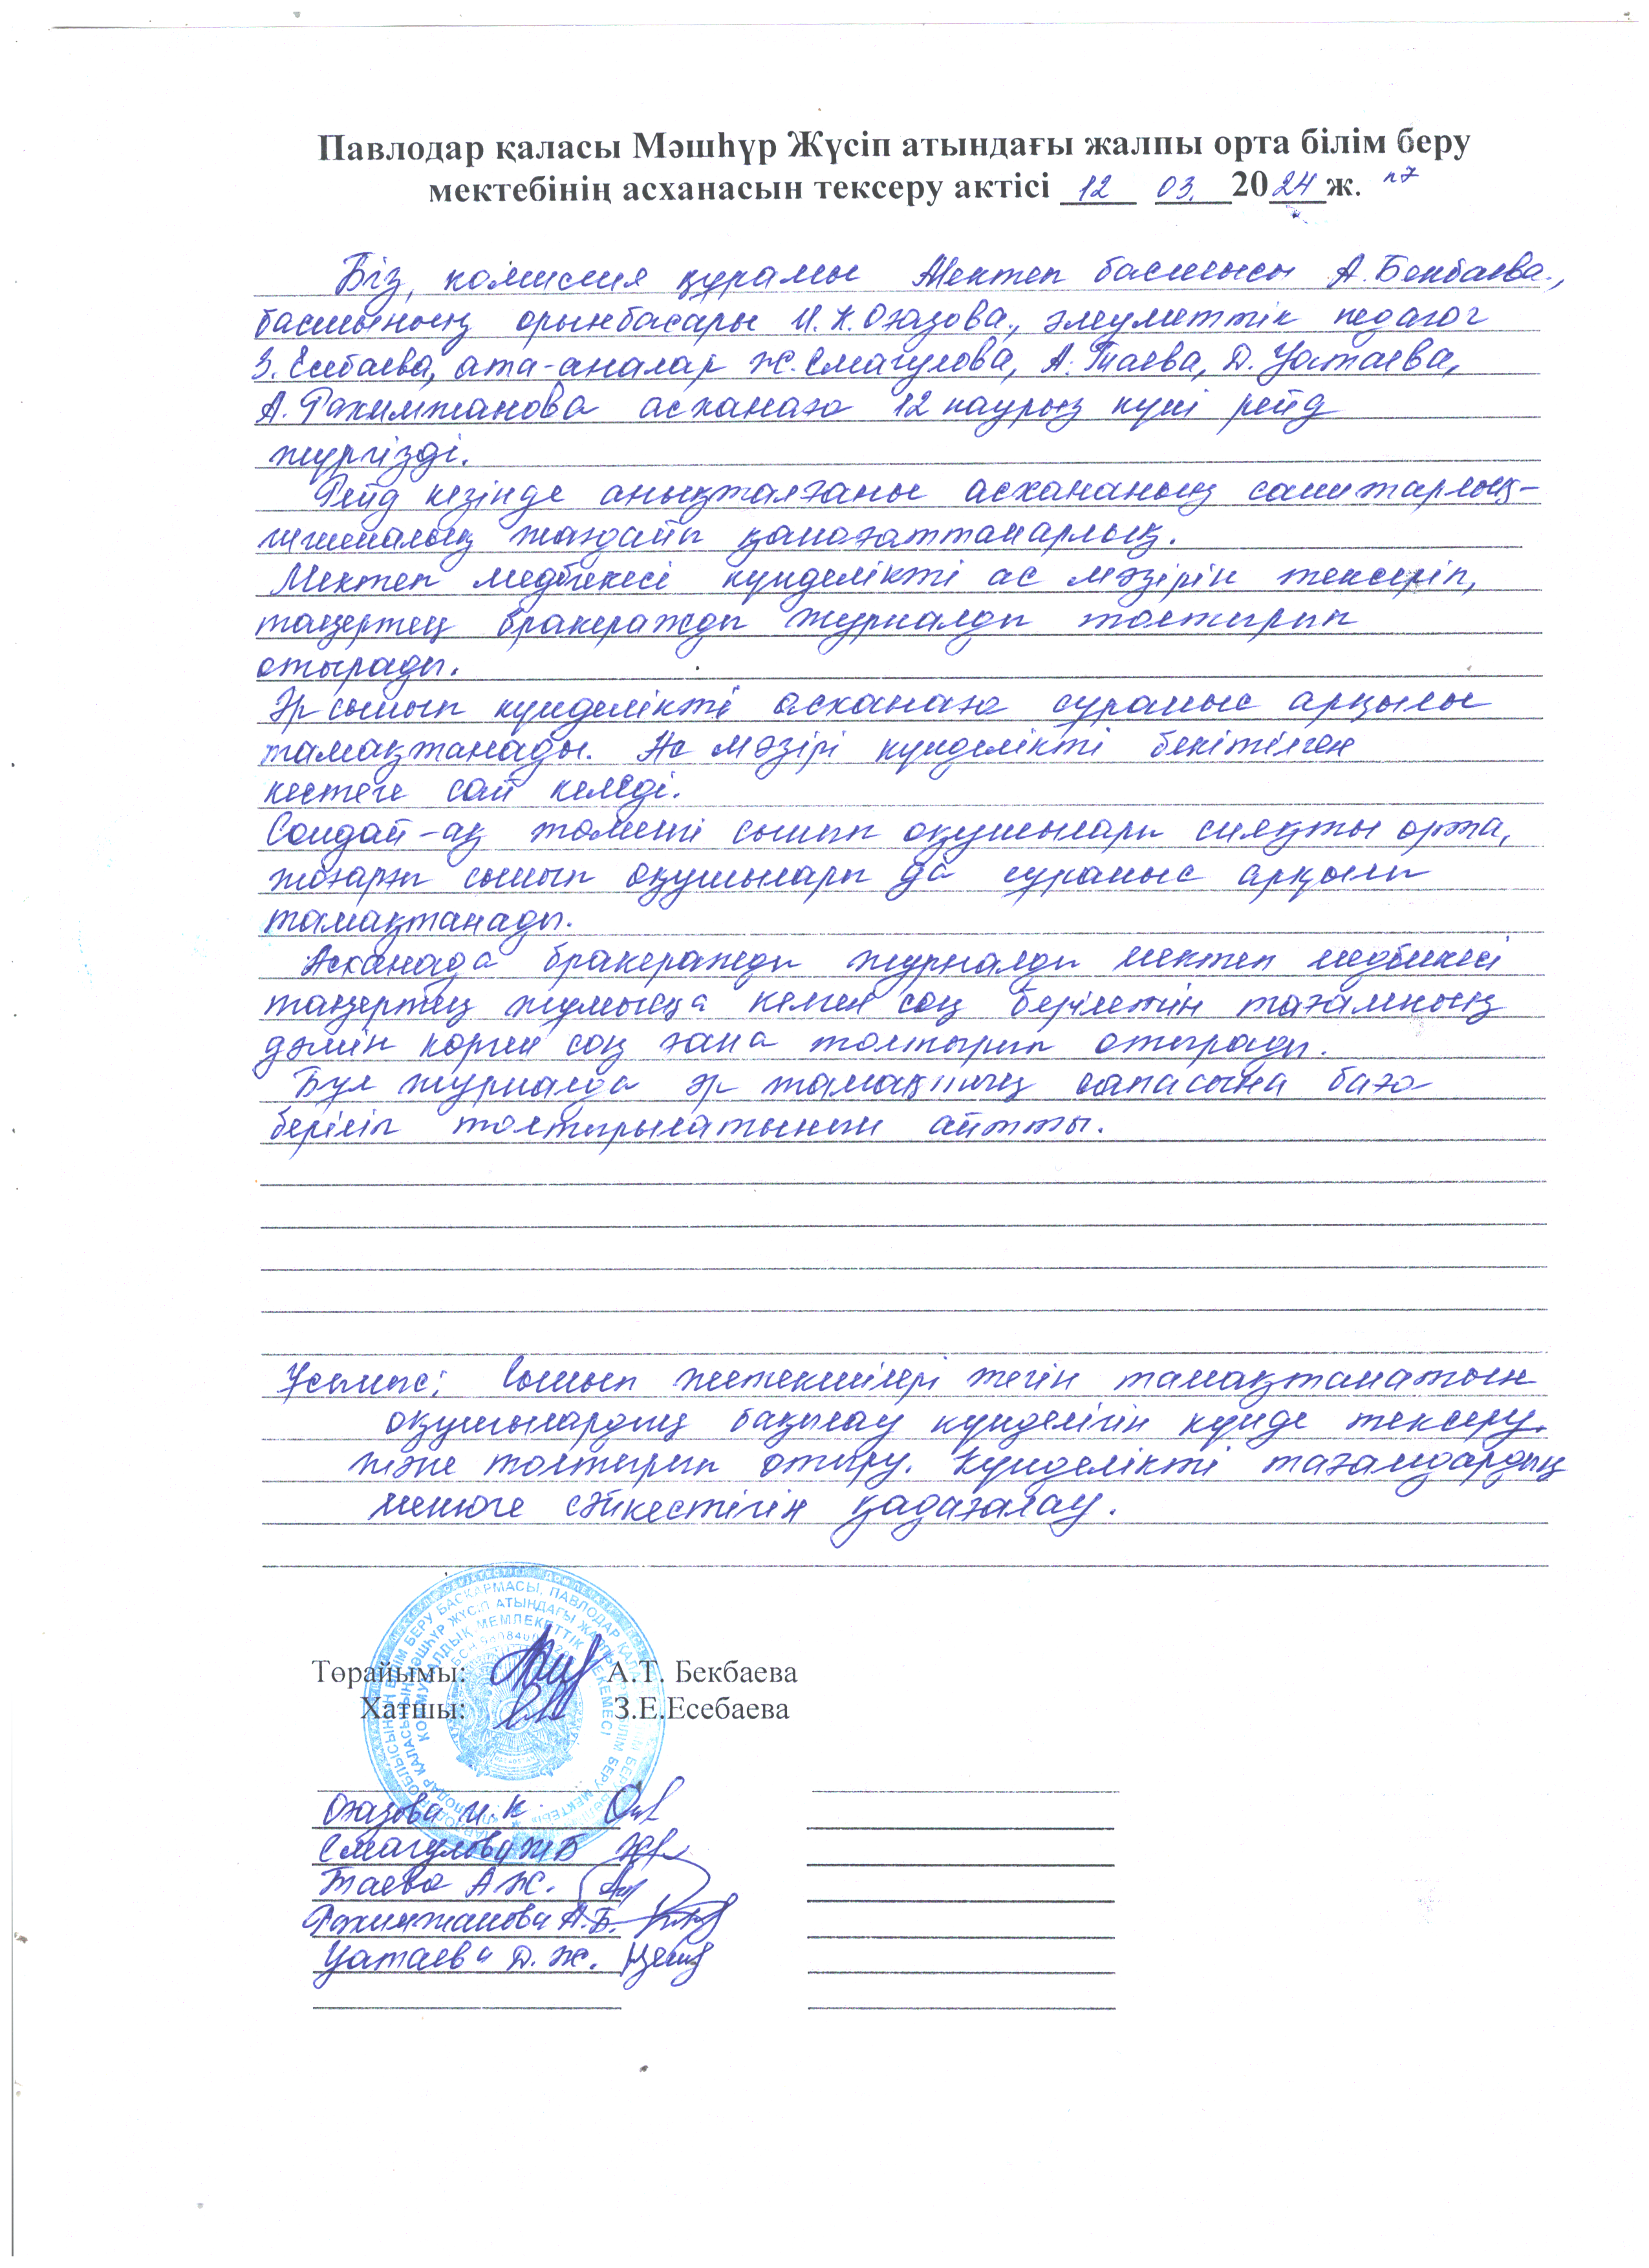 Павлодар қаласы Мәшһүр Жүсіп атындағы жалпы орта білім беру
мектебінің асханасын тексеру актісі 12 03. 2024 ж. п7
Біз, комиссия құрамы Мектеп басшысы А. Бекбаева.,
басшының орынбасары И.К. Оғазова., әлеуметтік педагог
З. Есебаева, ата-аналар Ж. Смагулова, А. Таева, Д. Уатаева,
А. Рахимжанова асханаға 12 наурыз күні рейд
жүргізді.
Рейд кезінде анықталғаны асхананың санитарлық-
гигиеналық жағдайы қанағаттанарлық.
Мектеп медбикесі күнделікті ас мәзірін тексеріп,
таңертең бракераждң журналды толтырып
отырады.
Әр сынып күнделікті асханаға сұраныс арқылы
тамақтанады. Ас мәзірі күнделікті бекітілген
кестеге сай келеді.
Сондай-ақ төменгі сынып оқушылары сияқты орта,
жоғары сынып оқушылары да сұраныс арқылы
тамақтанады.
Асханада бракеражды журналды мектеп медбикесі
таңертең жұмысқа келген соң берілетін тағамның
дәмін көрген соң ғана толтырып отырады.
Бұл журналда әр тамақтың сапасына баға
беріліп толтырылатынын айтты.
Ұсыныс: Сынып жетекшілері тегін тамақтанатын
оқушылардың бақылау күнделігін күнде тексеру.
және толтырып отыру. Күнделікті тағамдардың
менюге сәйкестігін қадағалау.
Төрайымы: А.Т. Бекбаева
Хатшы: З.Е.Есебаева
Оғазова И.К.
Смагулова Ж Б
Таева А Ж.
Рахимжанова А.Б.
Уатаева Д. Ж.